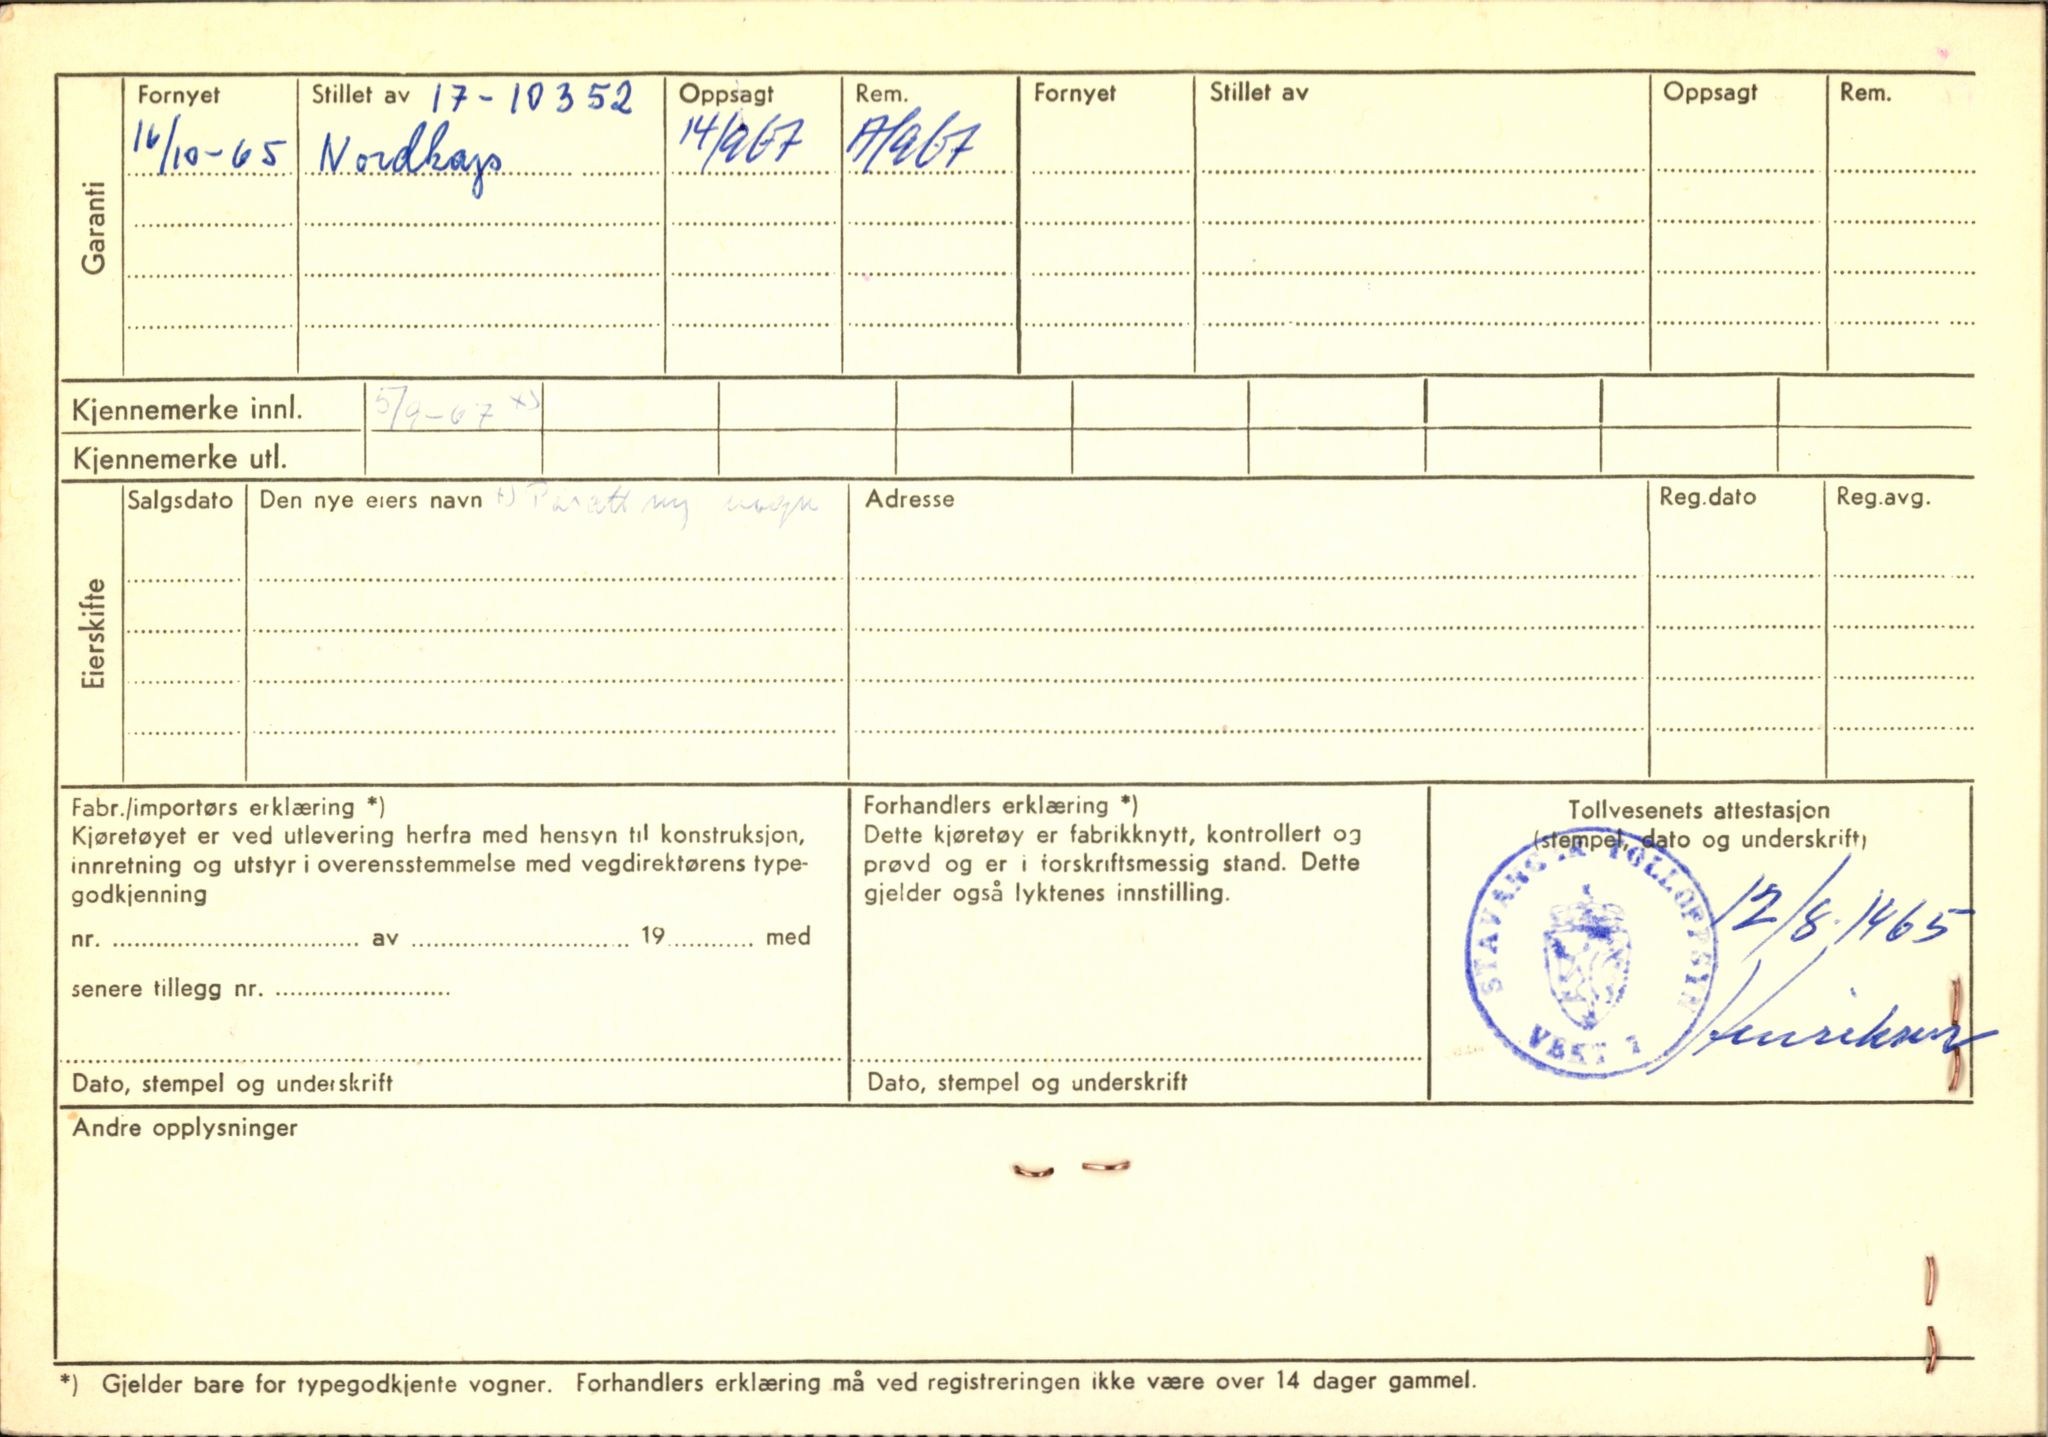 Garanti
Fornyet Stillet av 17-10352 Oppsagt Rem. Fornyet Stillet av Oppsagt Rem.
16/10-65 14/9 67 /9 67
Kjennemerke innl. 5/9-67 x)
Kjennemerke utl.
Eierskifte
Salgsdato Den nye eiers navn x) ny Adresse Reg.dato Reg.avg.
Fabr./importørs erklæring *)
Kjøretøyet er ved utlevering herfra med hensyn til konstruksjon,
innretning og utstyr i overensstemmelse med vegdirektørens type-
godkjenning
nr. av 19 med
senere tillegg nr.
Dato, stempel og underskrift
Forhandlers erklæring *)
Dette kjøretøy er fabrikknytt, kontrollert og
prøvd og er i forskriftsmessig stand. Dette
gjelder også lyktenes innstilling.
Dato, stempel og underskrift
Tollvesenets attestasjon
(stempel, dato og underskrift)
STAVANGER TOLLOPPSYN
VAKT 1
12/8. 1965
Henriksen
Andre opplysninger
*) Gjelder bare for typegodkjente vogner. Forhandlers erklæring må ved registreringen ikke være over 14 dager gammel.